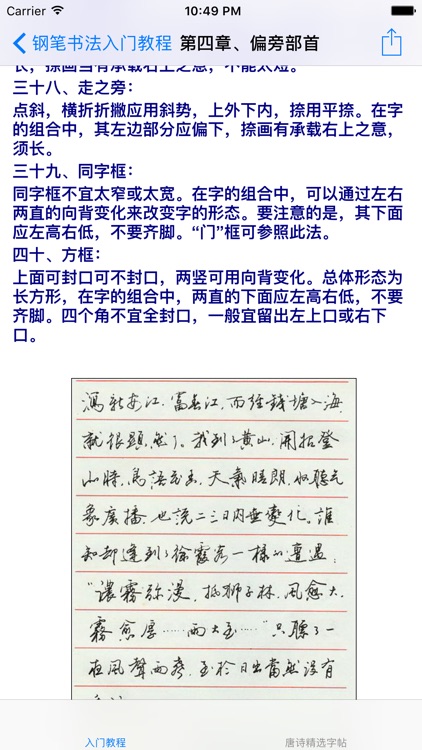 Carrier 10:49 PM
钢笔书法入门教程 第四章、偏旁部首
长，捺画当有承载右上之意，不能太短。
三十八、走之旁：
点斜，横折折撇应用斜势，上外下内，捺用平捺。在字
的组合中，其左边部分应偏下，捺画有承载右上之意，
须长。
三十九、同字框：
同字框不宜太窄或太宽。在字的组合中，可以通过左右
两直的向背变化来改变字的形态。要注意的是，其下面
应左高右低，不要齐脚。“门”框可参照此法。
四十、方框：
上面可封口可不封口，两竖可用向背变化。总体形态为
长方形，在字的组合中，两直的下面应左高右低，不要
齐脚。四个角不宜全封口，一般宜留出左上口或右下
口。
新安江，富春江，而经錢塘入海，
就很顯然了。我到了黄山，開始登
山時，天氣晴朗，收聽氣
象廣播，也説二三日内無變化。誰
知却逢到了徐霞客一樣的遭遇：
“濃霧弥漫，抵獅子林，風愈大，
霧愈厚……雨大至……”只聽了一
夜風聲雨声，至於日出當然没有
入门教程 唐诗精选字帖